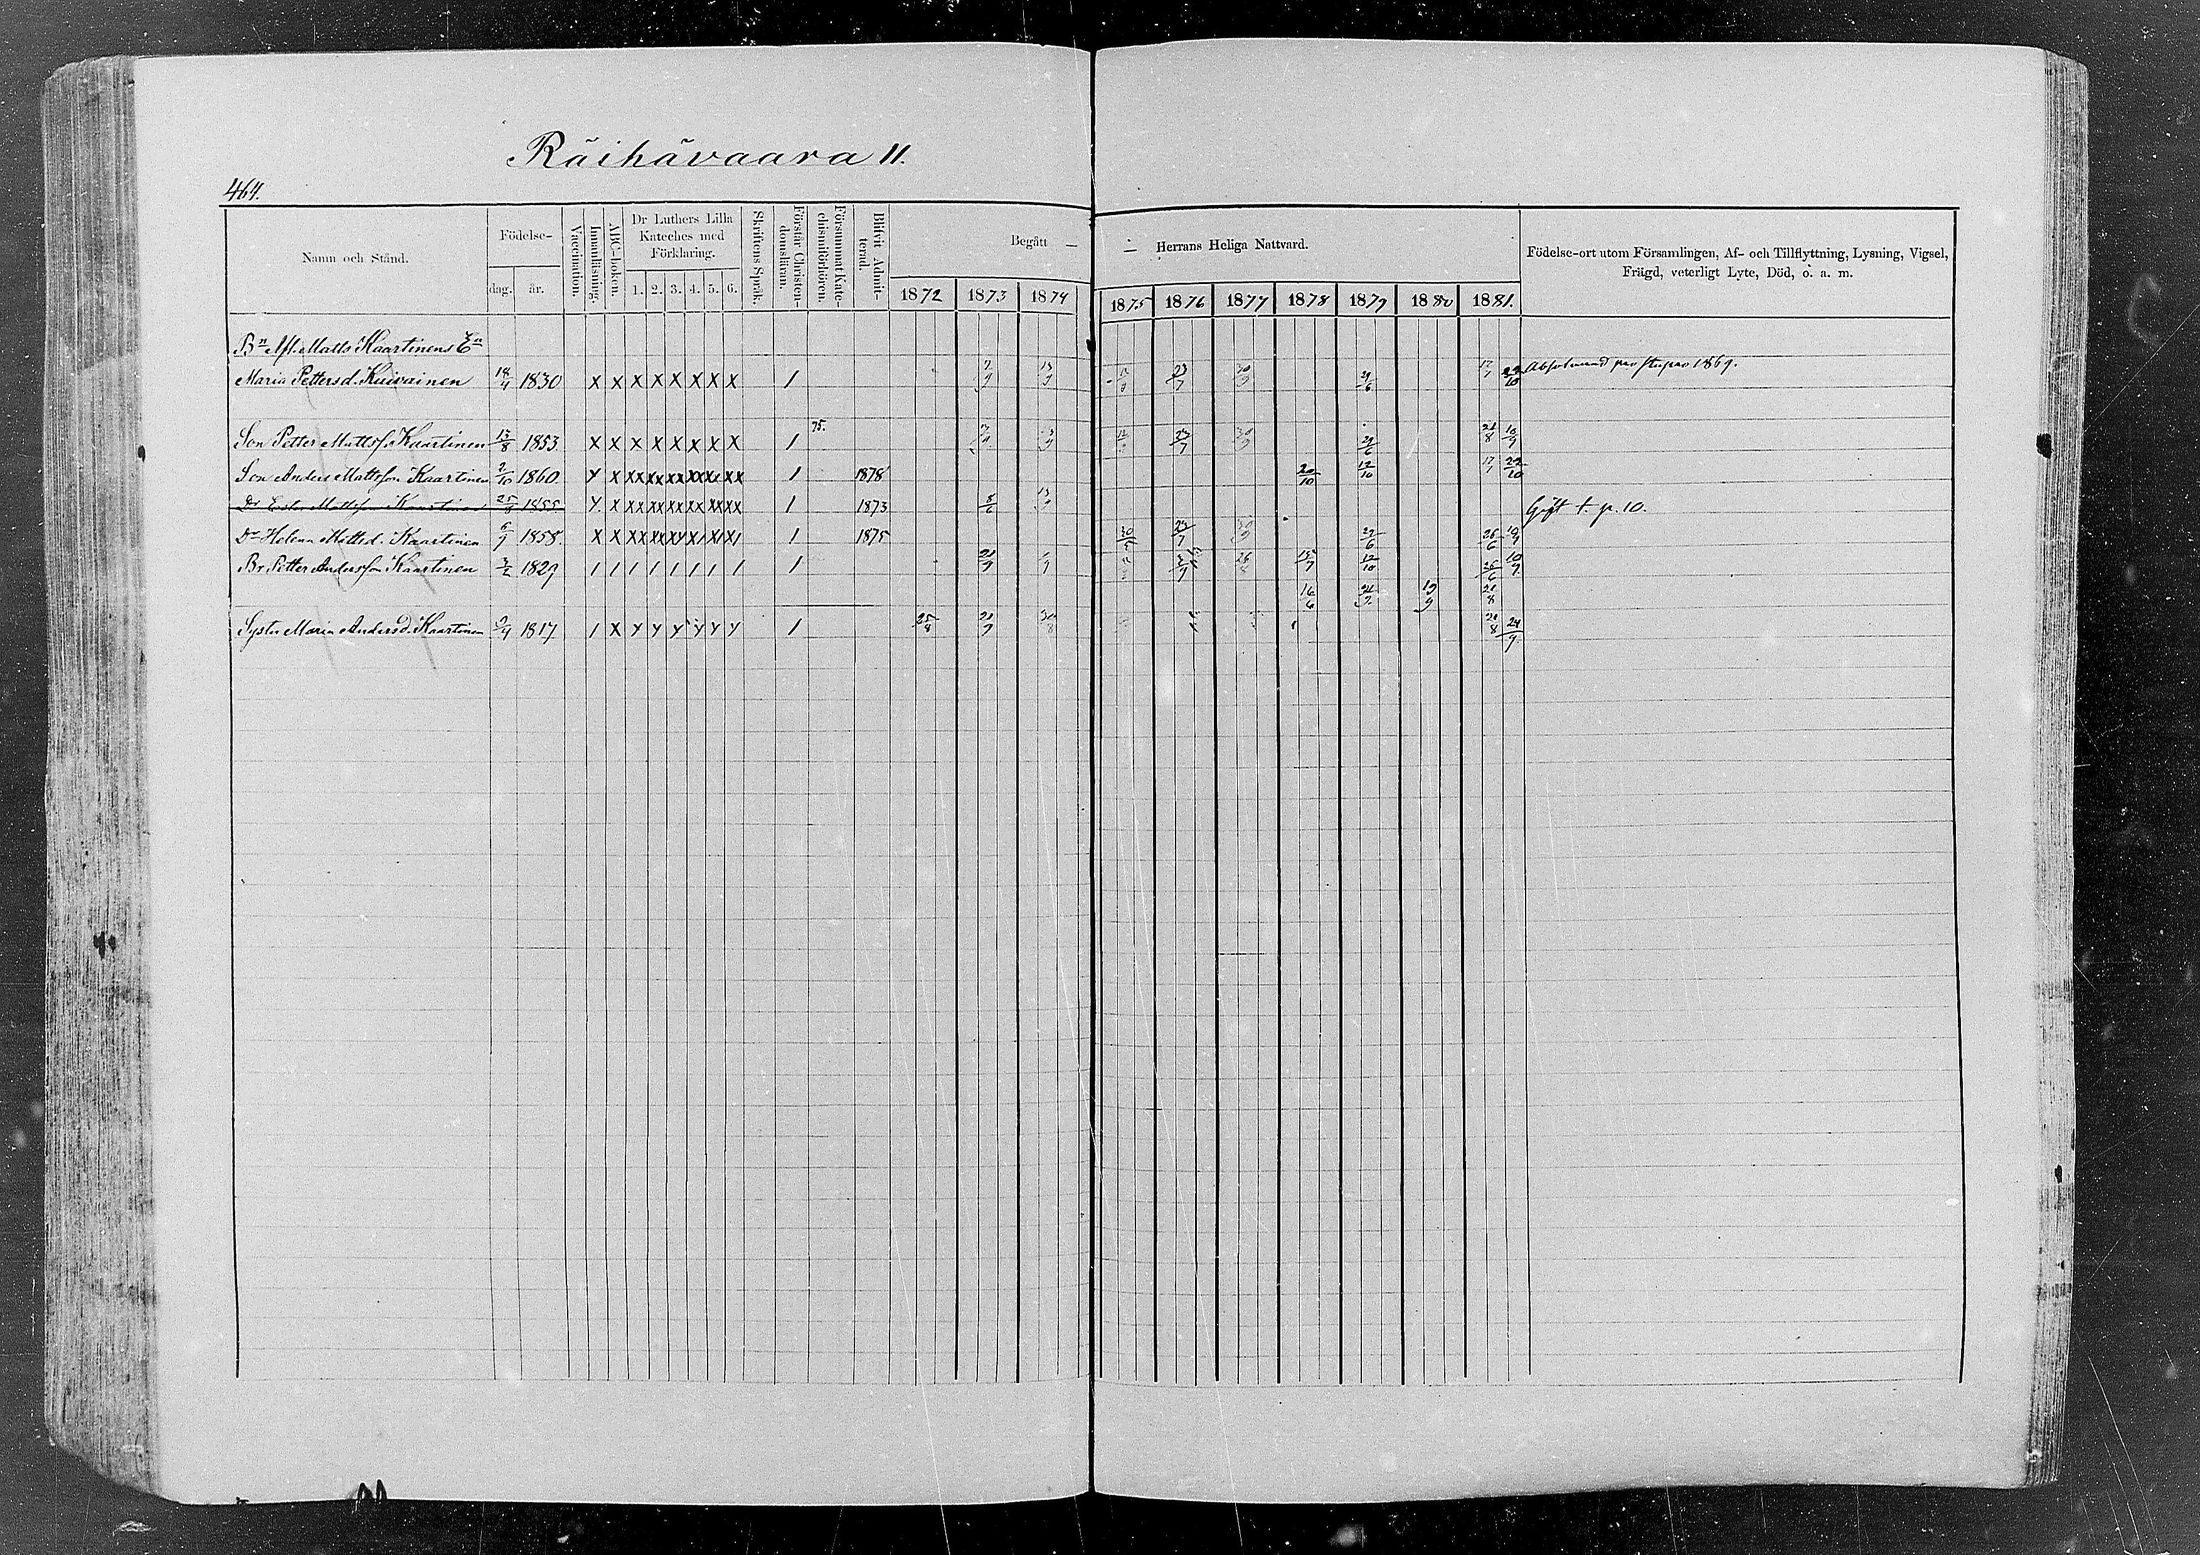 Räihävaara 11.
464.
Namn och Stånd.
Födelse-
dag. år.
Vaccination.
Innanläsning.
ABC-boken.
Dr Luthers Lilla
Kateches med
Förklaring.
1. 2. 3. 4. 5. 6.
Skriftens Språk.
Förstår Christen-
domsläran.
Försummat Kate-
chismiförhören.
Blifvit Admit-
terad.
Begått — — Herrans Heliga Nattvard.
1872 1873 1874 1875 1876 1877 1878 1879 1880 1881.
Födelse-ort utom Församlingen, Af- och Tillflyttning, Lysning, Vigsel,
Frägd, veterligt Lyte, Död, o. a. m.
Bn Matts Kaartinens En
Maria Pettersd. Kuivainen 18/4 1830 x x x x x x x x 1 23/7 29/6 22/10 1869.
Son Petter Mattsson Kaartinen 13/8 1853 x x x x x x x x 1 75. 23/7 29/6 21/8 10/9
Son Anders Mattsson Kaartinen 2/10 1860 1 1878 20/10 12/10 17/7 22/10
Dr Mattsson Kaartinen 25/8 1855 1 1873 8/6 Gift t. p. 10.
Dr Helena Mattsd. Kaartinen 6/9 1858. 1 1875 30/5 23/7 29/6 26/6 10/9
Br. Petter Andersson Kaartinen 3/2 1829 1 1 1 1 1 1 1 1 1 21/9 26/8 15/7 12/10 26/6 10/9
16/6 19/9 21/8
Syster Maria Andersd. Kaartinen 1817 1 25/8 21/9 30/8 21/8 24/9